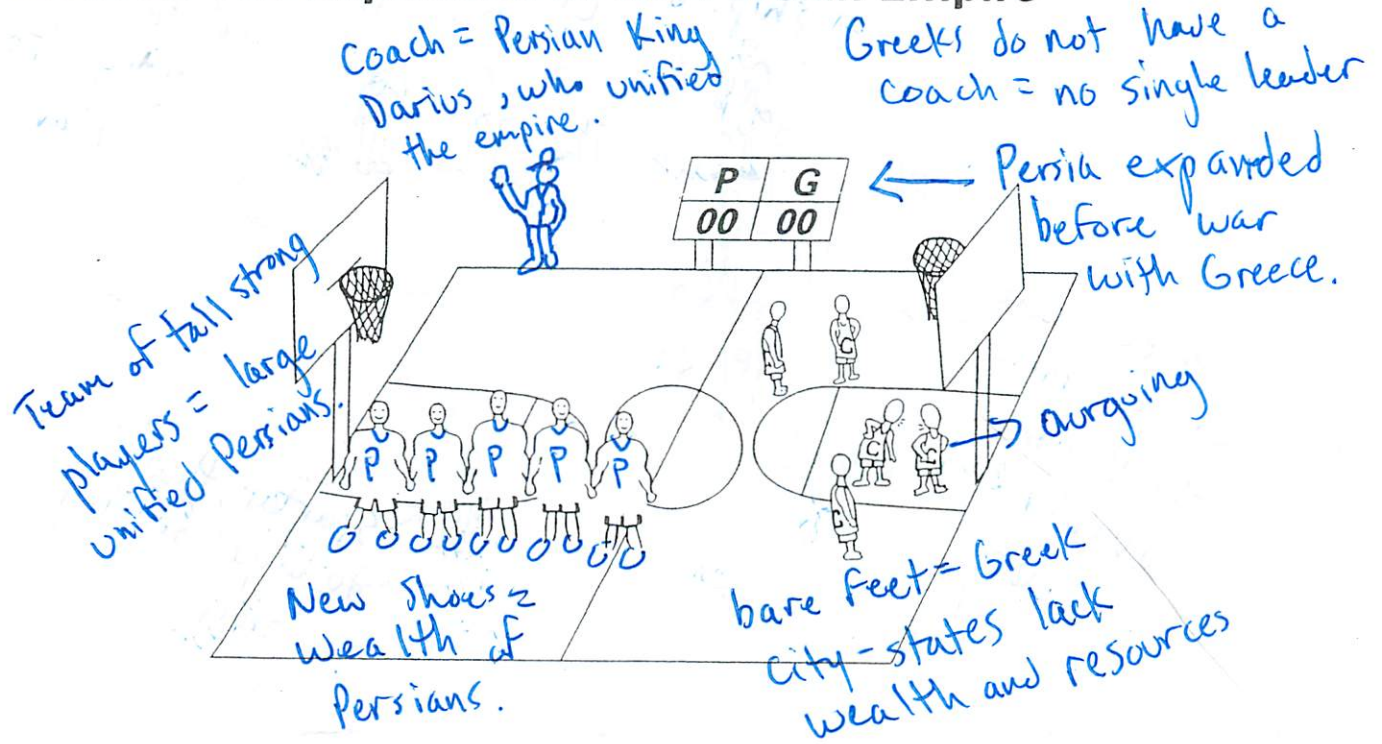 Empire
Coach = Persian King
Darius, who unified
the empire.
Greeks do not have a
coach = no single leader
P G
00 00
Persia expanded
before war
with Greece.
Team of tall strong
players = large
unified Persians.
P P P P P
C
C C
C
aurguing
New Shoes =
Wealth of
Persians.
bare feet = Greek
city-states lack
wealth and resources